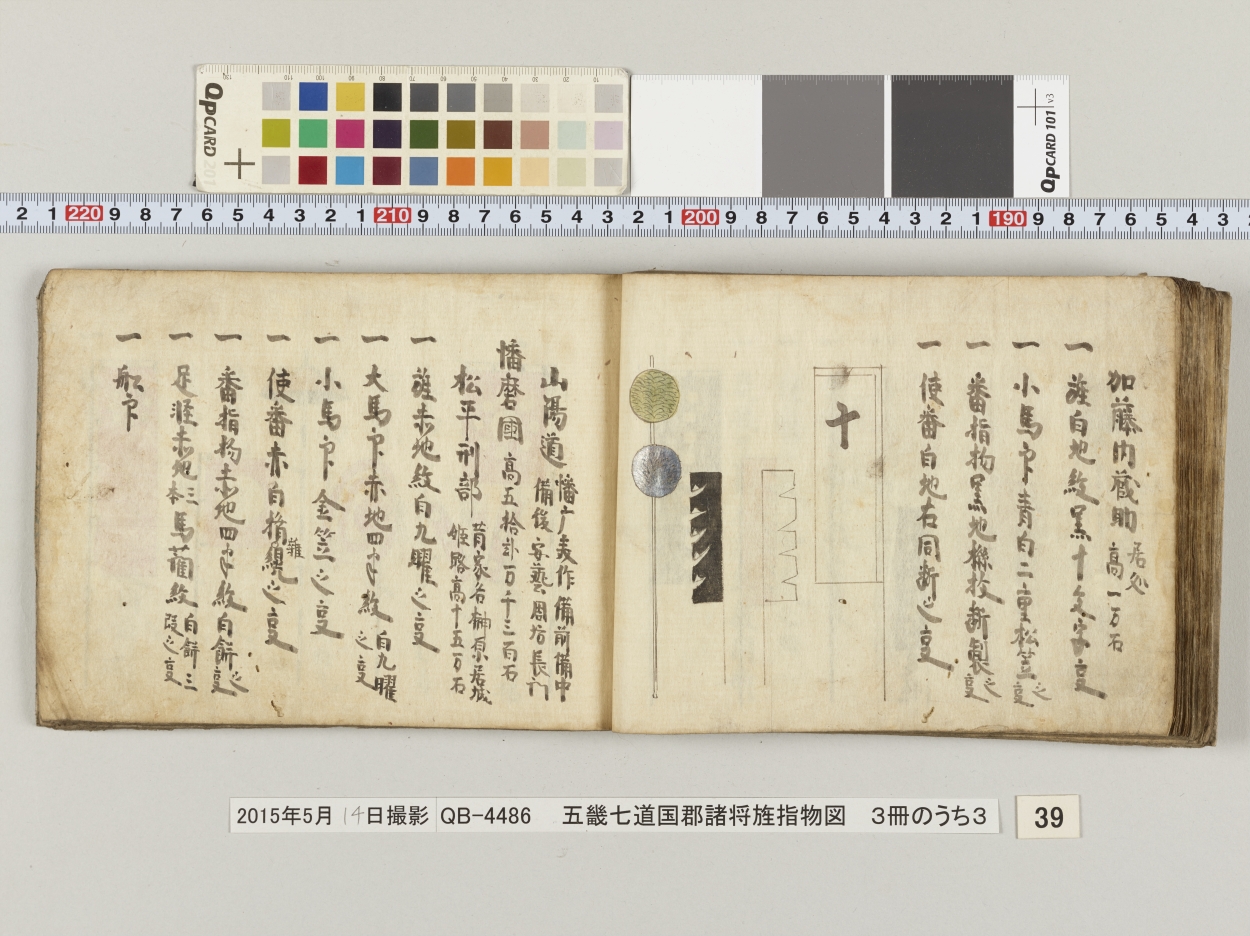 QPCARD 201
QPCARD 101 v3
2 1 220 9 8 7 6 5 4 3 2 1 210 9 8 7 6 5 4 3 2 1 200 9 8 7 6 5 4 3 2 1 190 9 8 7 6 5 4 3
加藤内蔵助 居処 高一万石
一 旌白地紋黒十文字之事
一 小馬印青白二重松笠之事
一 番指物黒地
一 使番白地右同断之事
十
山陽道 播广 美作 備前 備中
備後 安藝 周防 長門
幡磨國 高五拾弐万千三百石
松平刑部 苗家名榊原居城
姫路高十五万石
一 旌赤地紋白九曜之事
一 大馬印赤地四半紋白九曜之事
一 小馬印金笠之事
一 使番赤白
一 番指物赤地四半紋白餅之事
一 足軽赤地三本馬藺紋白餅三段之事
一 船印
2015年5月14日撮影 QB-4486 五畿七道国郡諸将旌指物図 3冊のうち3
39